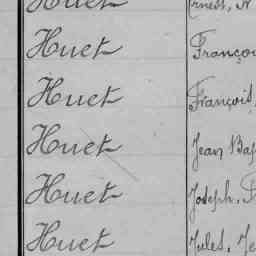 Huet Ernest, N
Huet Françoi
Huet François,
Huet Jean Bap
Huet Joseph,
Huet Jules, Je